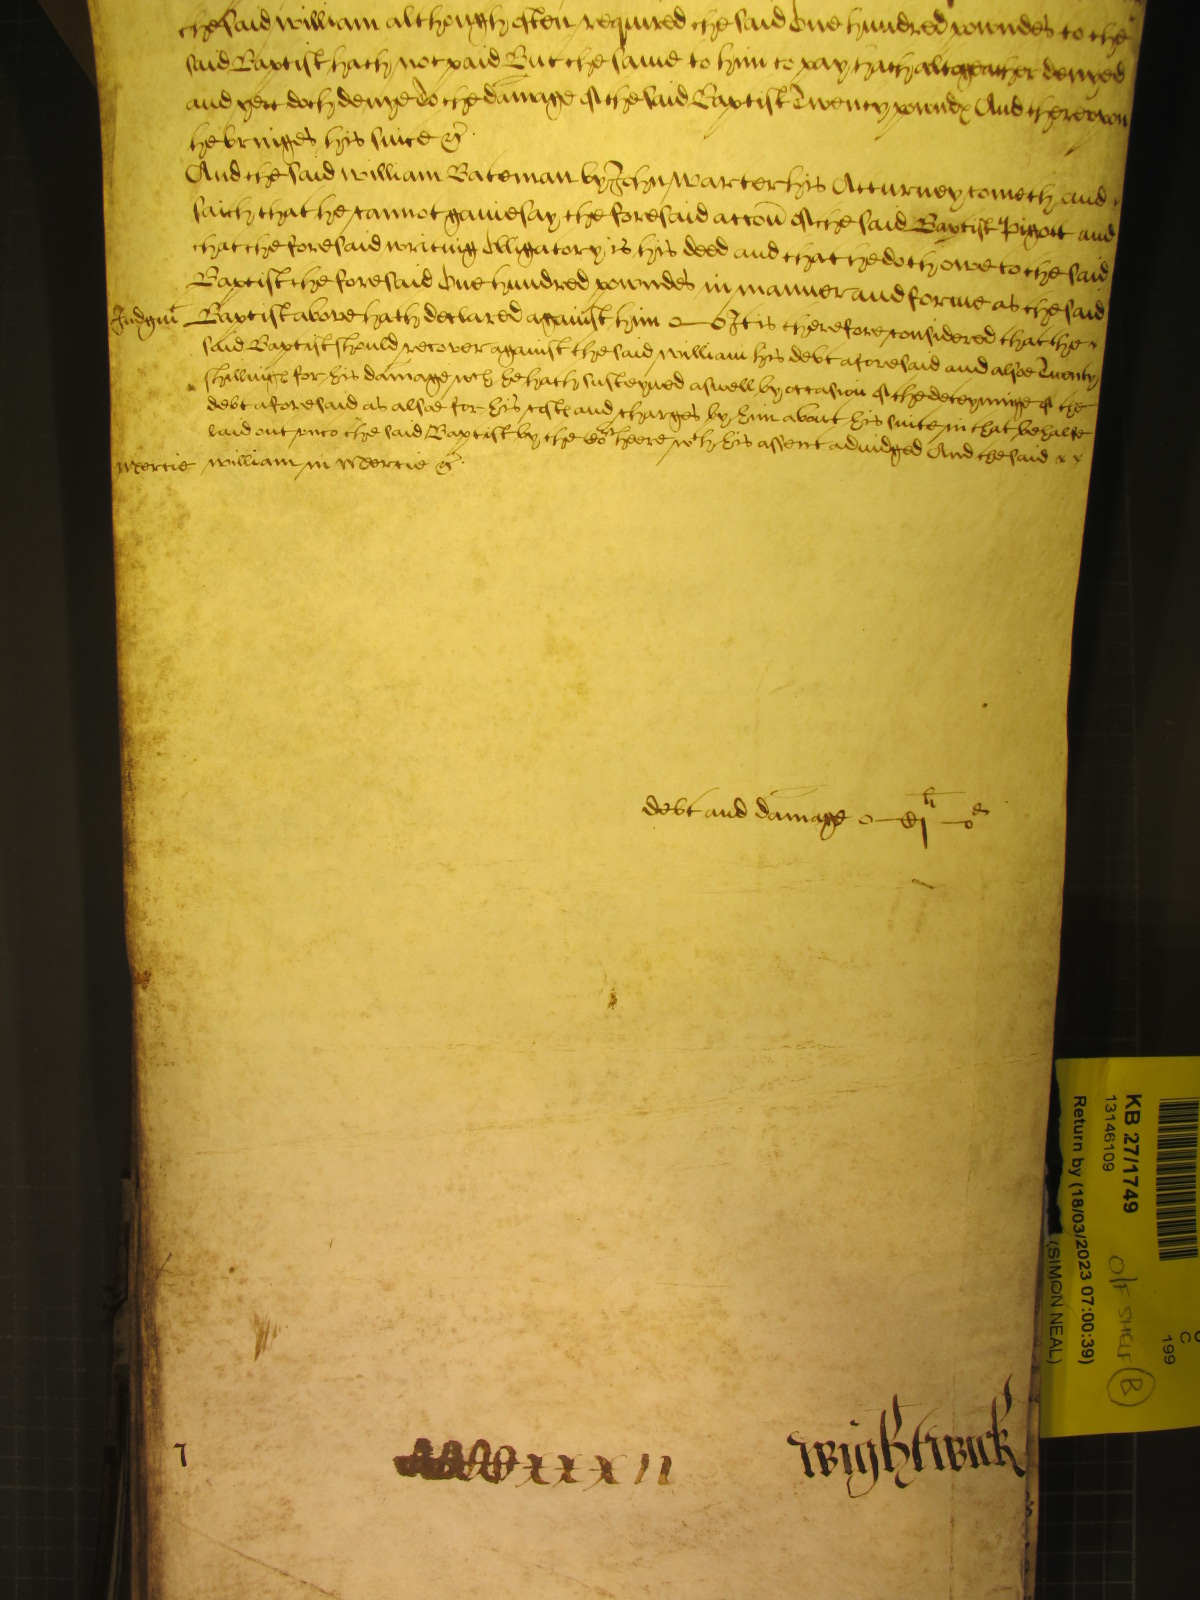 the said William although often required the said One hundred powndes to the
said Baptist hath not paid But the same to him to pay hath altogeather denyed
and yett doth denye To the damage of the said Baptist Twenty pownd And thereupon
he bringes his suite &c
And the said William Bateman by John Warter his Atturney cometh and
saith that he cannot gainesay the foresaid accon of the said Baptist Pigott and
that the foresaid writing obligatory is his deed and that he doth owe to the said
Baptist the foresaid One hundred powndes in manner and forme as the said
Judgmt Baptist above hath declared against him It is therefore considered that the
said Baptist should recover against the said William his debt aforesaid and alsoe Twenty
shillings for his damage wch he hath susteyned aswell by occasion of the deteyninge of the
debt aforesaid as alsoe for his costs and charges by him about his suite in that behalfe
laid out unto the said Baptist by the Cort heere wth his assent adiudged And the said
Mercie William in Mercie &c
debt and damage
7
xxx11
Wightwick
KB 27/1749
13146109
Return by (18/03/2023 07:00:39)
(SIMON NEAL)
O/F SHELF B
C
199